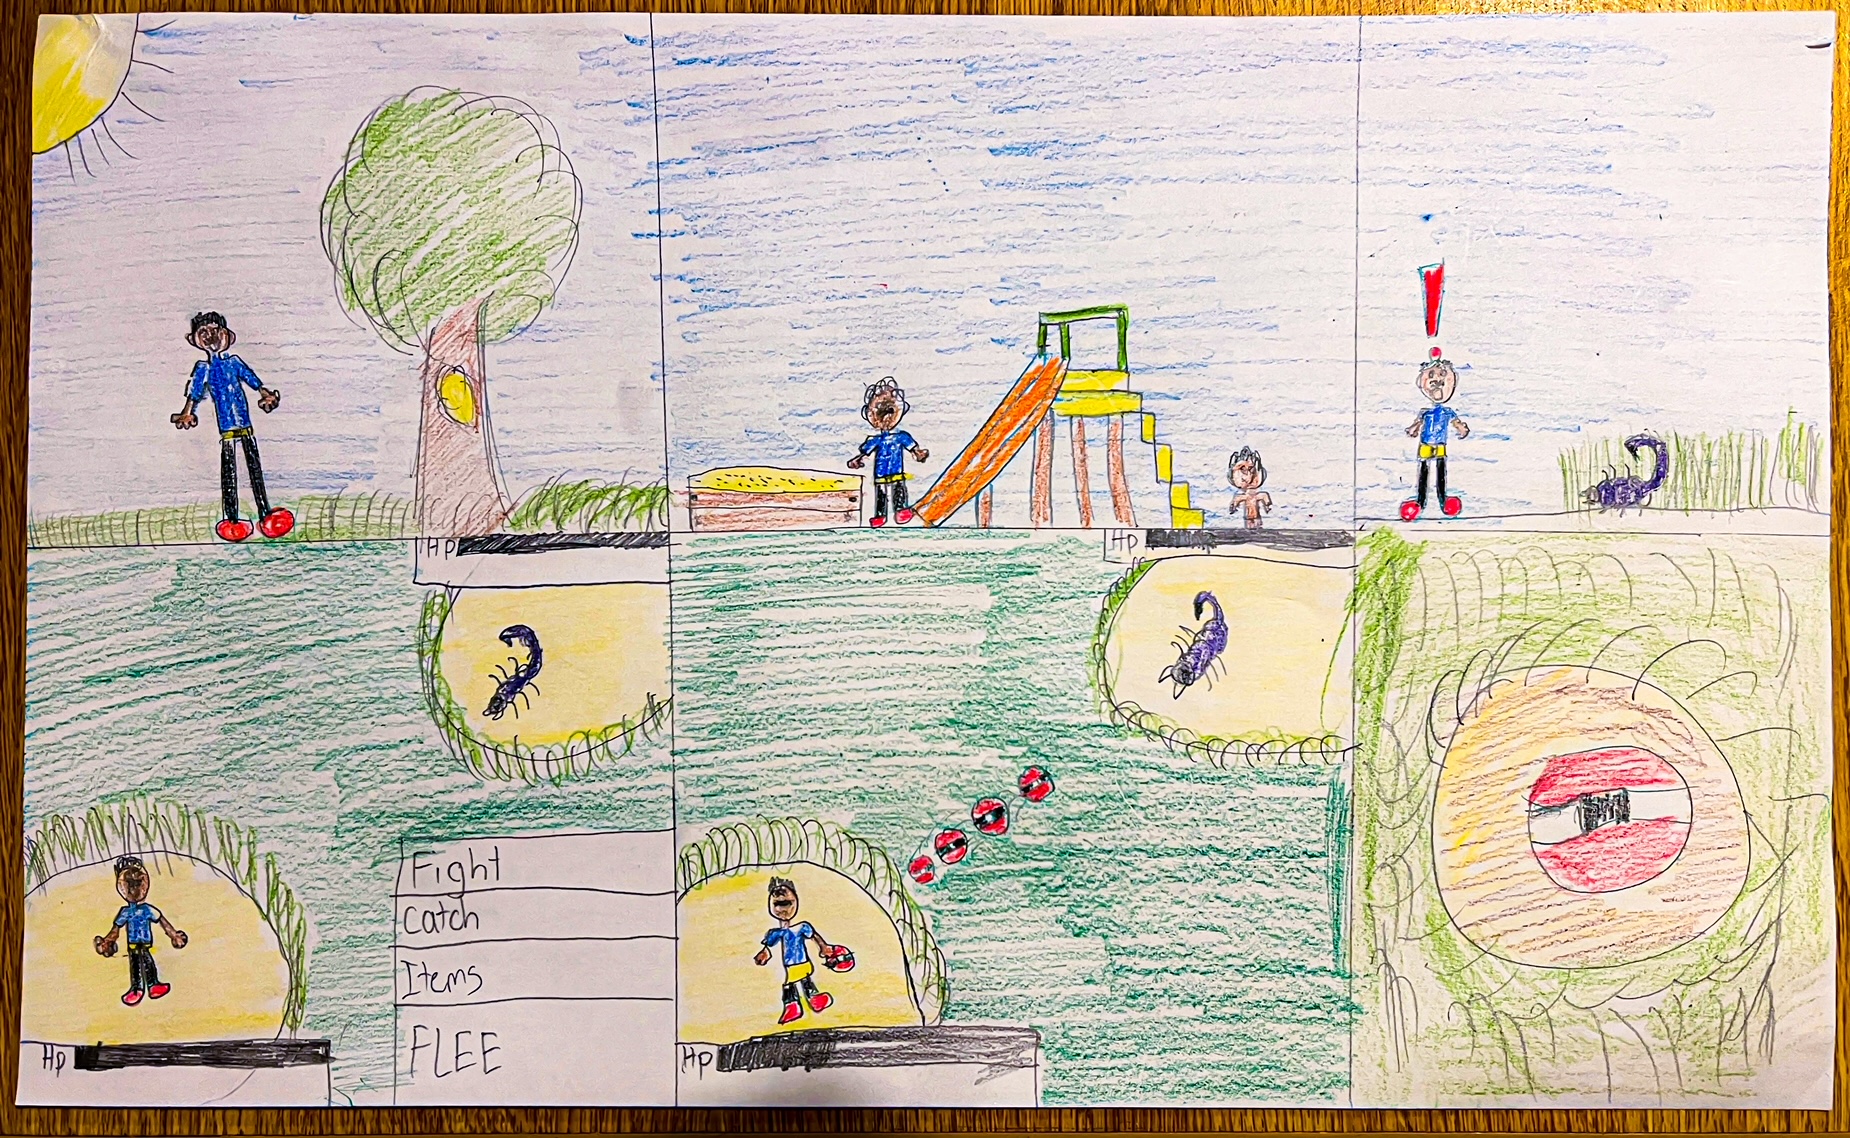 Hp
Hp
Fight
Catch
Items
FLEE
Hp
Hp